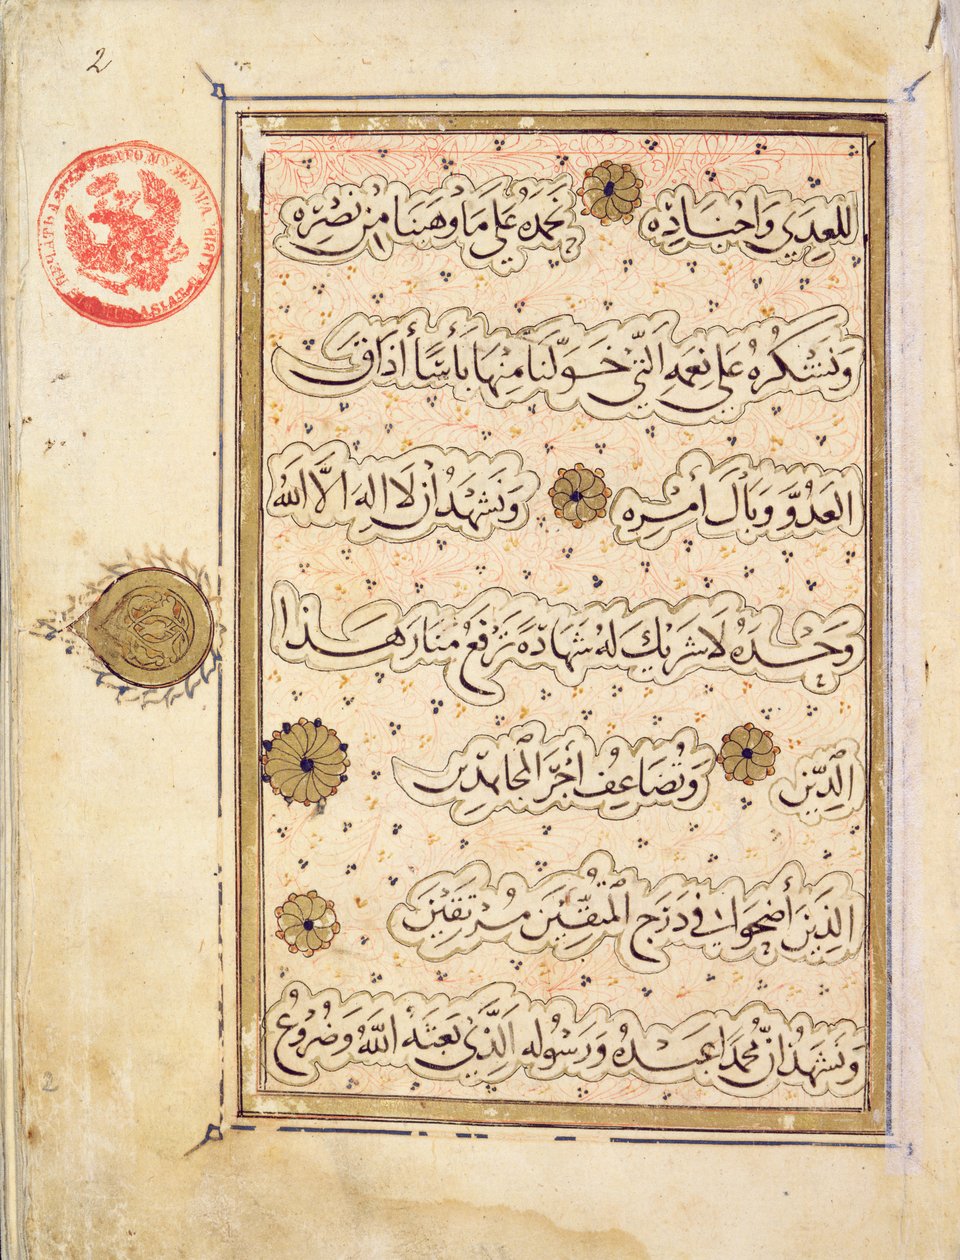 2
للعدى واجناده نحمده على ما وهبنا من نصره
ونشكره على نعمه التى خولنا منها بأسا أذاق
العدو وبال أمره ونشهد أن لا اله الا الله
وحده لا شريك له شهادة ترفع منار هذا
الدين وتضاعف أجر المجاهدين
الذين أضحوا فى درج المتقين مرتقين
ونشهد ان محمدا عبده ورسوله الذى بعثه الله وضروع
2